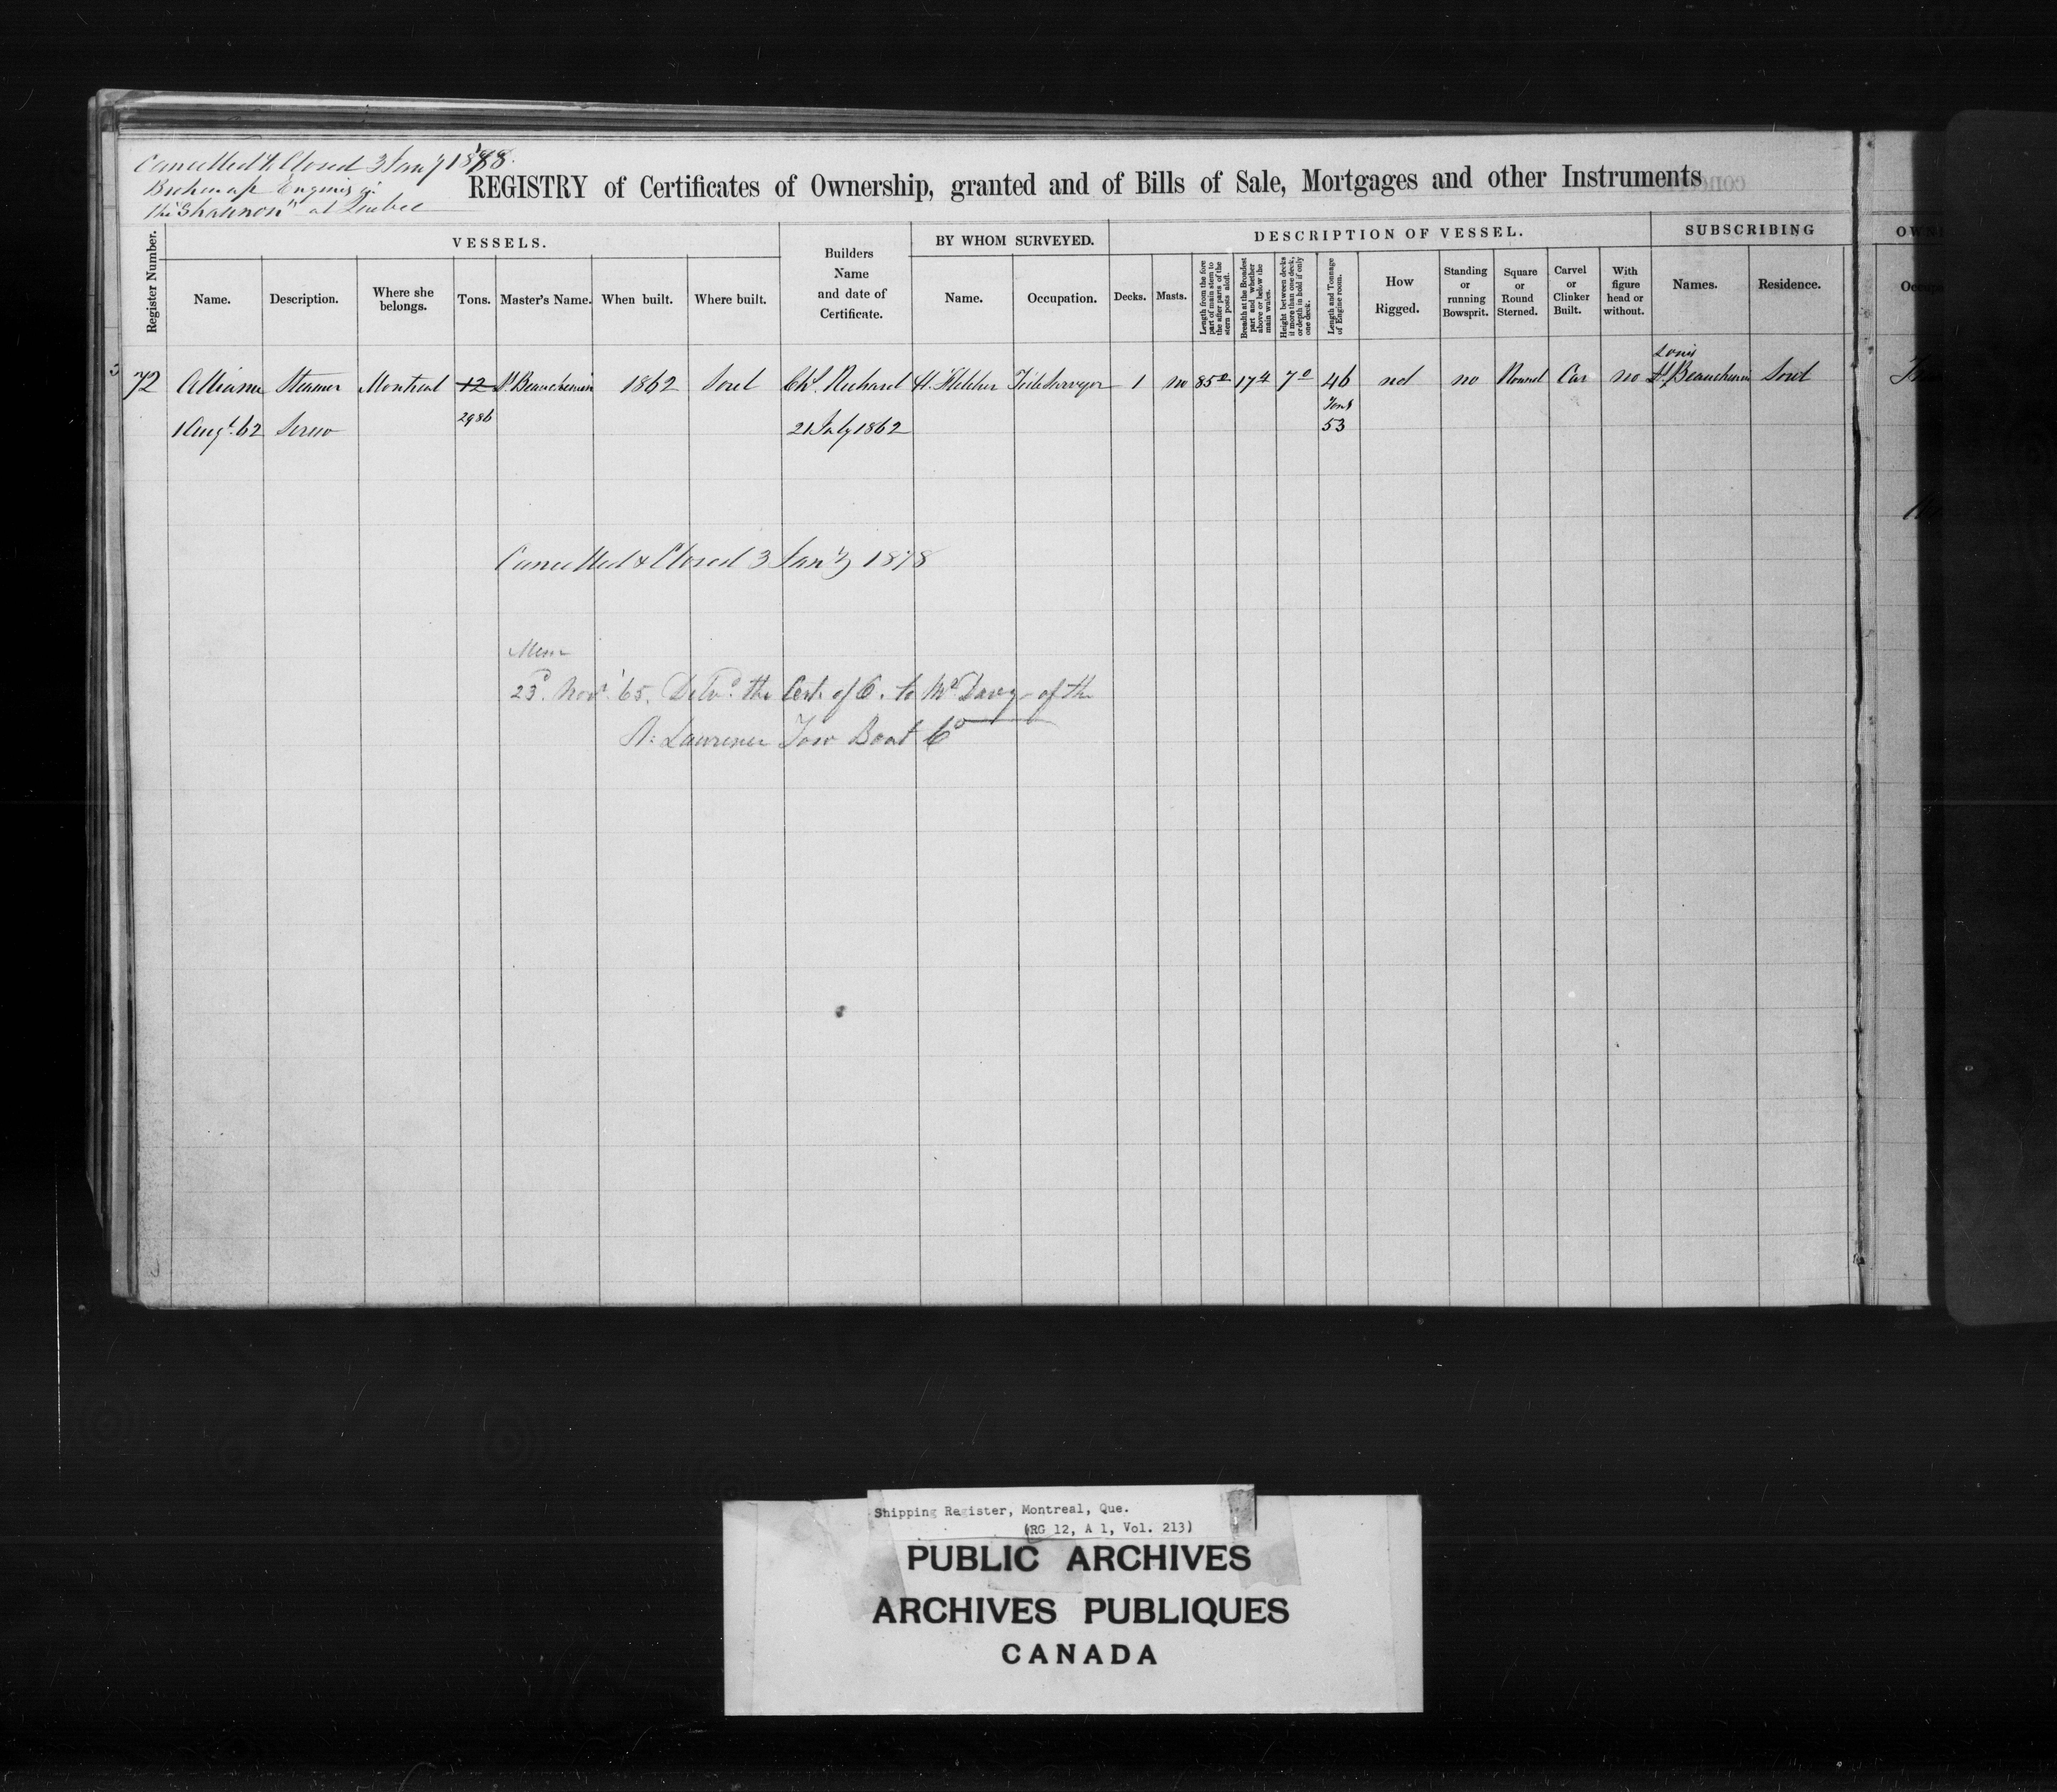 Cancelled & Closed 3 Jany 1878.
Broken up Engines in
the "Shannon" at Quebec
REGISTRY of Certificates of Ownership, granted and of Bills of Sale, Mortgages and other Instruments
VESSELS. BY WHOM SURVEYED. DESCRIPTION OF VESSEL. SUBSCRIBING OWN
Register Number.
Name.
Description.
Where she
belongs.
Tons.
Master's Name.
When built.
Where built.
Builders
Name
and date of
Certificate.
Name.
Occupation.
Decks.
Masts.
Length from the fore
part of main stem to
the after parts of the
stern posts aloft.
Breadth at the Broadest
part and whether
above or below the
main wales.
Height between decks
if more than one deck,
or depth in hold if only
one deck.
Length and Tonnage
of Engine room.
How
Rigged.
Standing
or
running
Bowsprit.
Square
or
Round
Sterned.
Carvel
or
Clinker
Built.
With
figure
head or
without.
Names.
Residence.
Louis
72 Alliance Steamer Montreal 12 P. Beauchemin 1862 Sorel Chs. Richard H. Tide Surveyor 1 no 85 0 17 4 7 0 46 no no Round Car no Beauchemin Sorel
Tons
1 Augt. 62 Screw 2986 21 July 1862 53
Cancelled & Closed 3 Jany 1878
Mem
23d. Novr. '65. Delvd. the Cert. of O. to Mr. Davey of the
St. Lawrence Tow Boat Co
Shipping Register, Montreal, Que.
(RG 12, A 1, Vol. 213)
PUBLIC ARCHIVES
ARCHIVES PUBLIQUES
CANADA